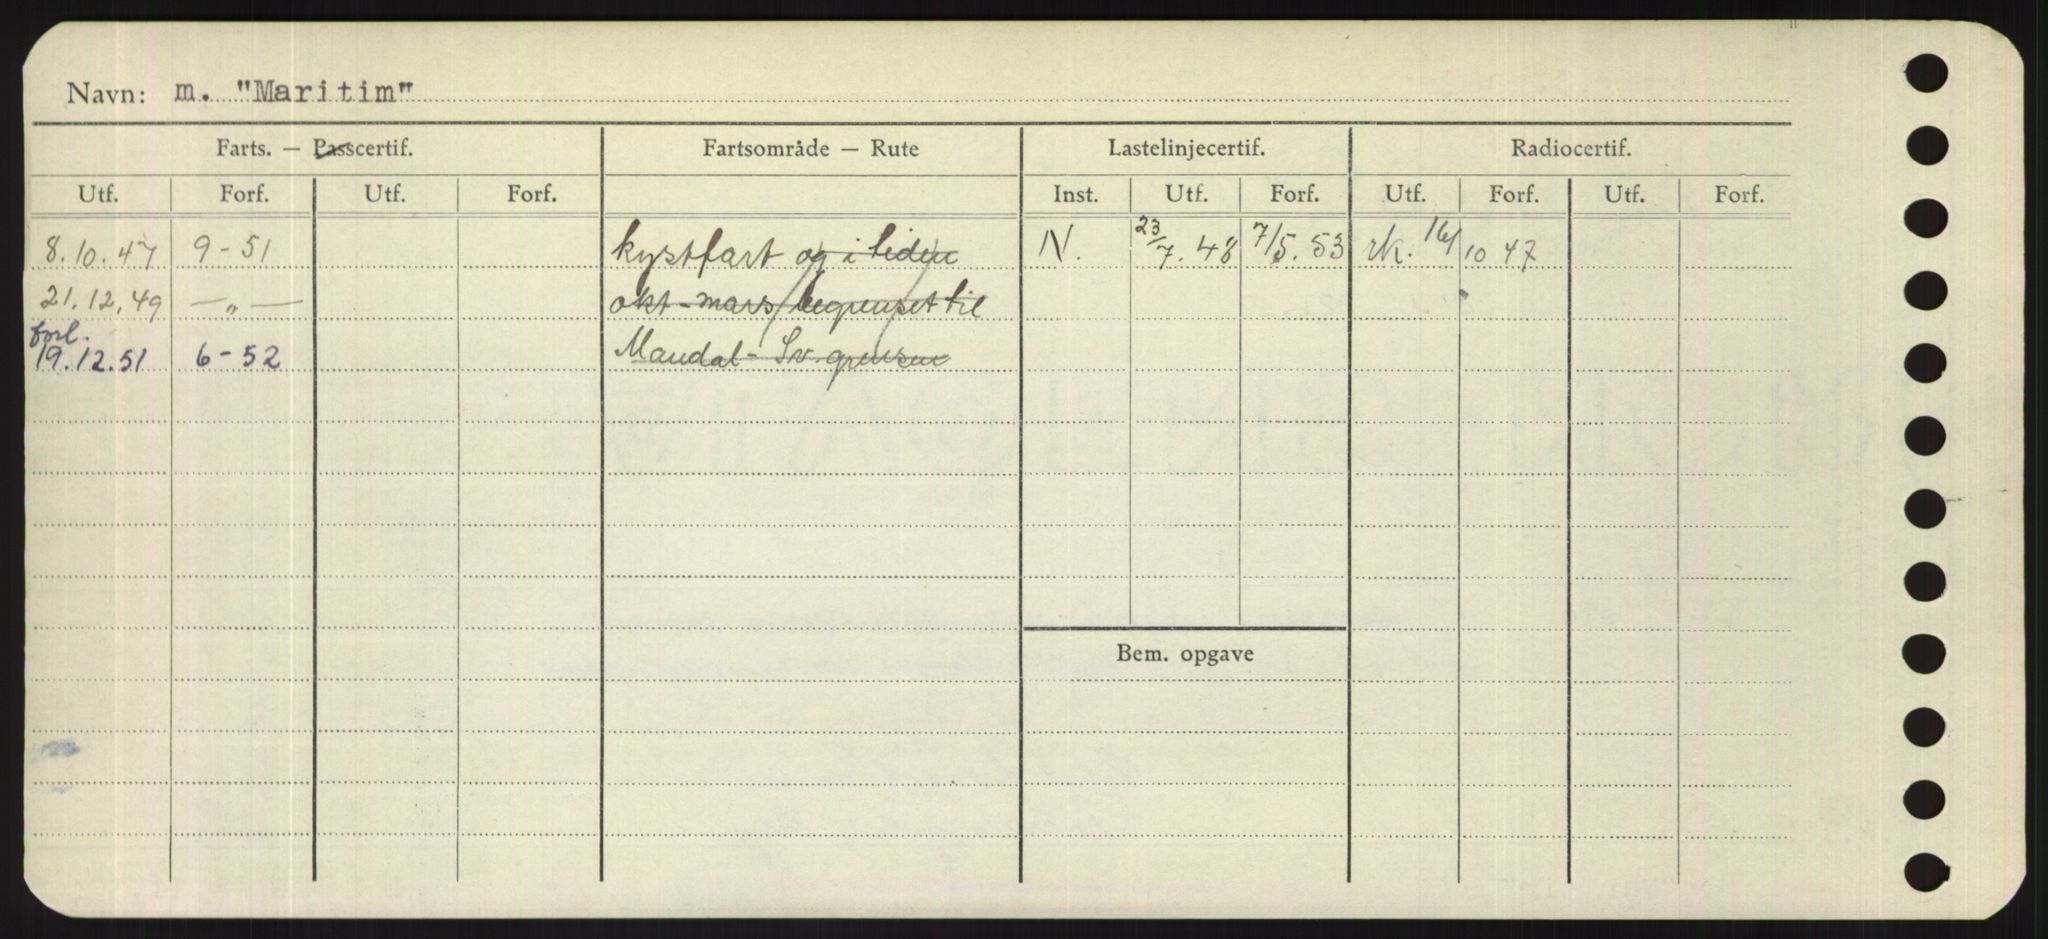 Navn: m. "Maritim"
Farts. — Passcertif. Fartsområde — Rute Lastelinjecertif. Radiocertif.
Utf. Forf. Utf. Forf. Inst. Utf. Forf. Utf. Forf. Utf. Forf.
8.10.47 9-51 kystfart og i tiden N. 23/7.48 7/5.53 rk. 16/10 47
21.12.49 —„— okt-mars begrenset til
forl.
19.12.51 6-52 Mandal - Sv. grensen
Bem. opgave